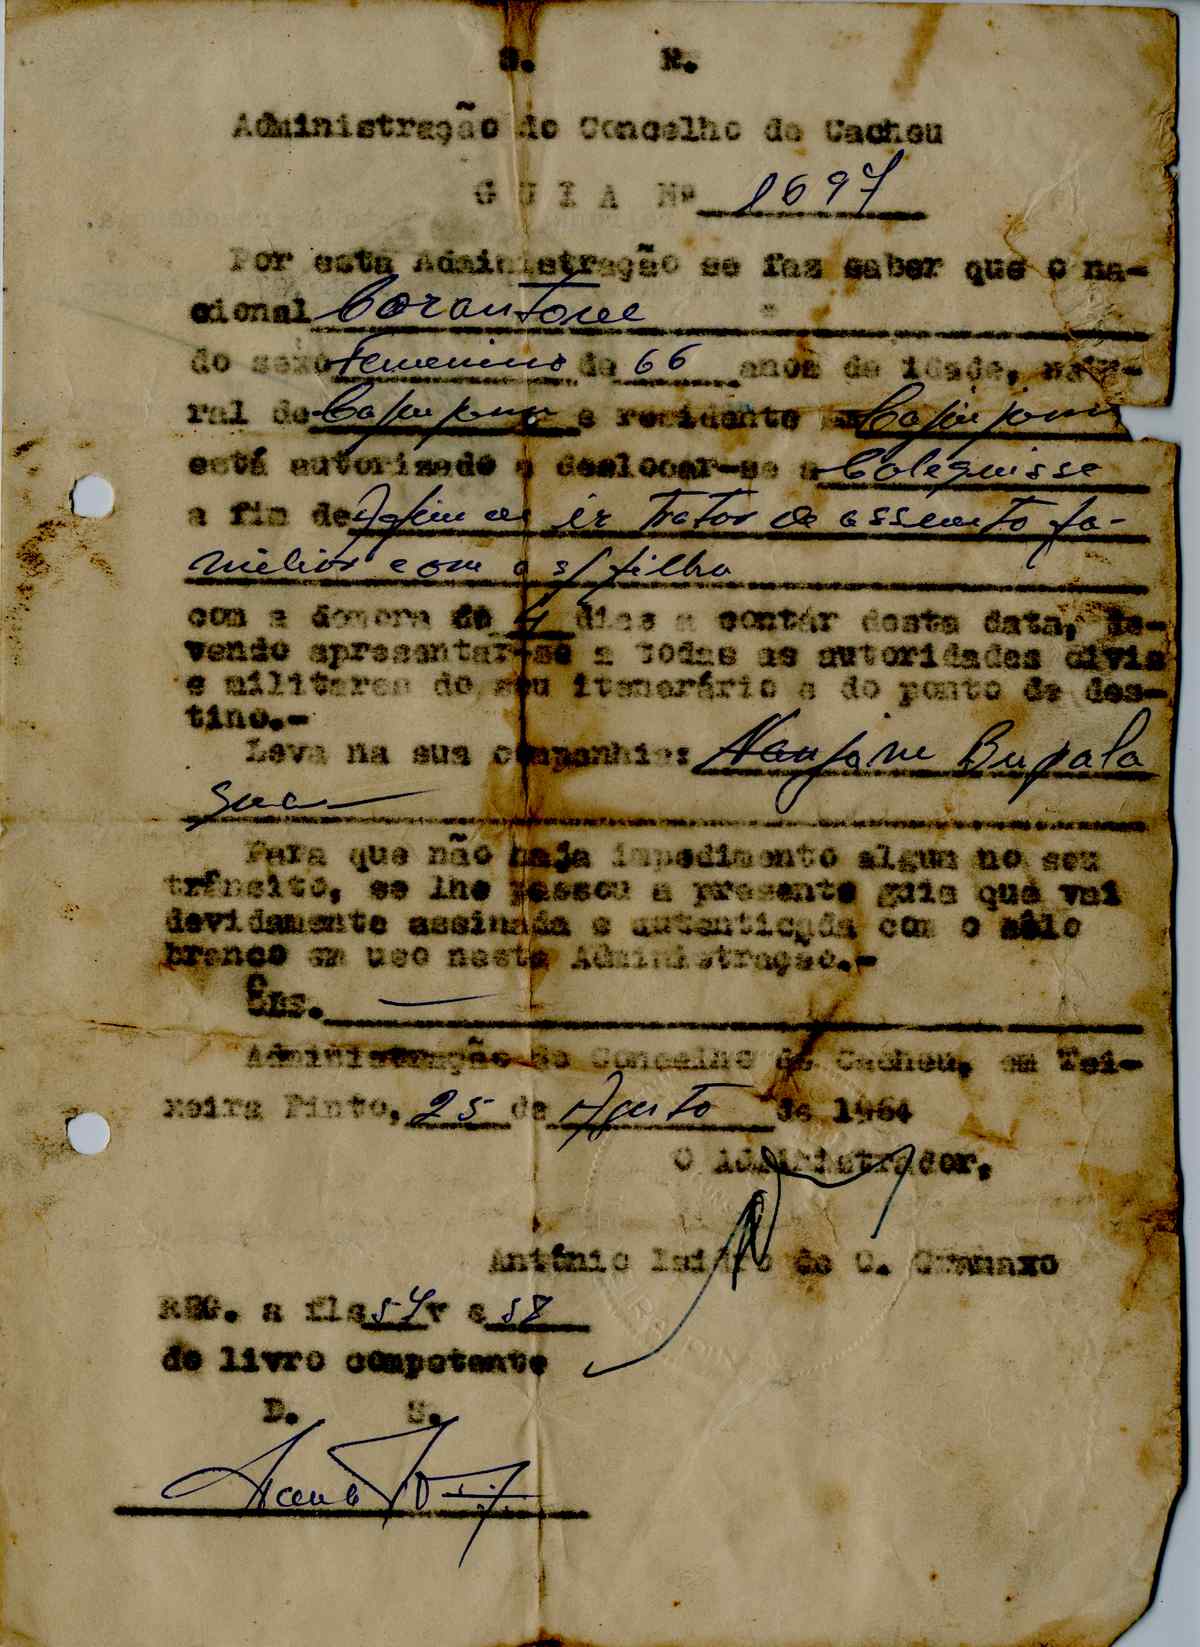 S. R.
Administração do Concelho de Cacheu
G U I A Nº 1697
Por esta Administração se faz saber que o na-
cional Corantone
do sexo Femenino de 66 anos de idade, natu-
ral de e residente em
está autorizado a deslocar-se a Colequisse
a fim de ir tratar de assunto fa-
miliar com o s/ filho
com a demora de 4 dias a contar desta data, de-
vendo apresentar-se a todas as autoridades civis
e militares do seu itenerário e do ponto de des-
tino.-
Leva na sua companhia: Bupala
Para que não haja impedimento algum no seu
trânsito, se lhe passou a presente guia que vai
devidamente assinada e autenticada com o sêlo
branco em uso nesta Administração.-
Obs.
Administração do Concelho de Cacheu, em Tei-
xeira Pinto, 25 de Agosto de 1964
O Administrador,
António Isidro de C.
REG. a fls 57 v e 58
do livro competente